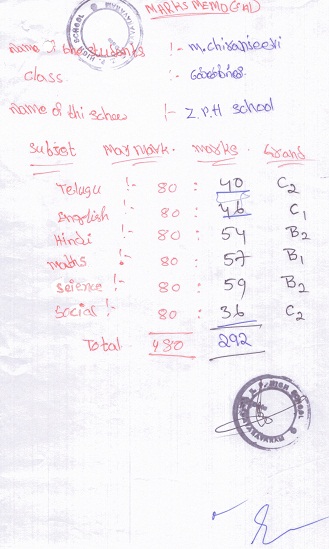 MARKS MEMO(SA1)
name of the students :- m. chiranjeevi
class :-
name of thi schoo :- Z.P.H school
Subject Max mark. marks. Grand
Telugu :- 80 : 40 C2
English :- 80 : 46 C1
Hindi 80 : 54 B2
maths :- 80 : 57 B1
seience :- 80 : 59 B2
Social :- 80 : 36 C2
Total 480 292
HIGH SCHOOL